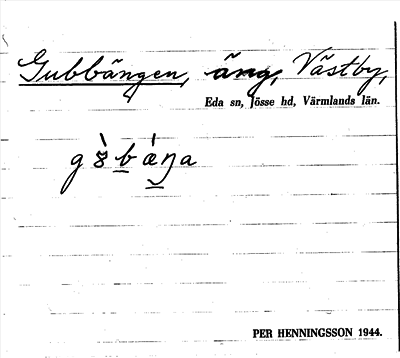 Gubbängen, äng, Västby,
Eda sn, Jösse hd, Värmlands län.
PER HENNINGSSON 1944.